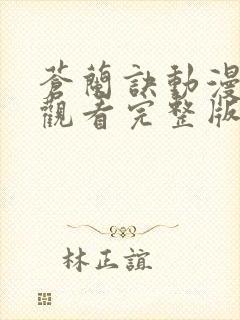 蒼蘭訣動漫
觀看完整版
林正誼